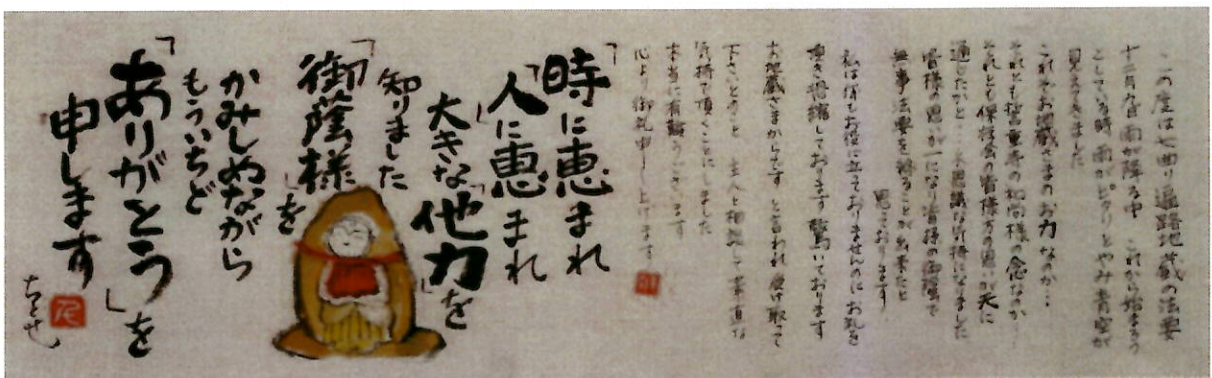 この度は七曲り遍路地蔵の法要
十二月八日 雨が降る中 これから始まろう
としている時 雨がピタリとやみ 青空が
見えてきました
これぞお地蔵さまのお力なのか…
それとも 和尚様の念なのか…
それとも保存会の皆様方の思いが天に
通じたかと… 不思議な気持になりました
皆様の思いが一つになり 皆様の御蔭で
無事法要を終ることが出来たと
思っております
私は何もお役に立っておりませんのに お礼を
頂き恐縮しております 驚いております
お地蔵さまからです と言われ 受け取って
下さいとのこと 主人と相談して 素直な
気持で頂くことにしました
本当に有難うございます
心より御礼申し上げます
「時に恵まれ
「人」に恵まれ
大きな「他力」を
知りました
「御蔭様」を
かみしめながら
もういちど
「ありがとう」を
申します
ちとせ